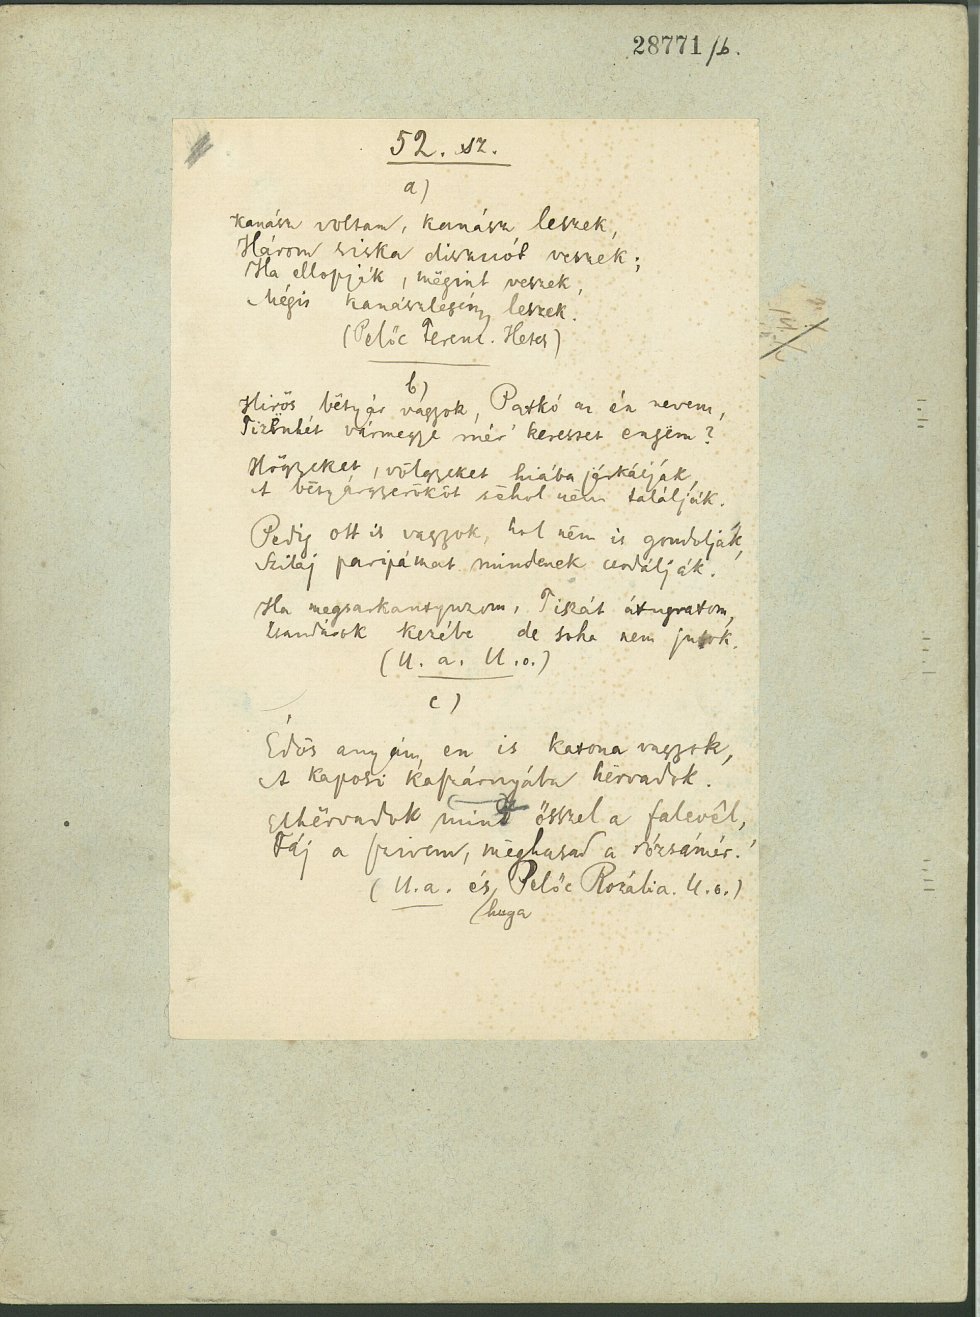 28771/b.
52. sz.
a)
Kanász voltam, kanász leszek,
Három siska disznót veszek;
Ha ellopják, mëgint veszek,
Mégis kanászlegény leszek.
(Pelőc Ferenc. Hetes)
b)
Hirös bëtyár vagyok, Patkó az én nevem,
Tizënhét vármegye mér' keresset engëm?
Högyeket, völgyeket hiába járkálják,
A bëtyárgyerököt sëhol nëm találják.
Pedig ott is vagyok, hol nëm is gondolják,
Szilaj paripámat mindenek csodálják.
Ha megsarkantyuzom, Tiszát átugratom,
Zsandárok kezébe de soha nem jutok.
(U. a. U. o.)
c)
Édös anyám, en is katona vagyok,
A kaposi kaszárnyába hërvadok.
Elhërvadok mint összel a falevél,
Fáj a szivem, mëghasad a rózsámér.'
(U. a. és Pelőc Rozália. U. o.)
huga